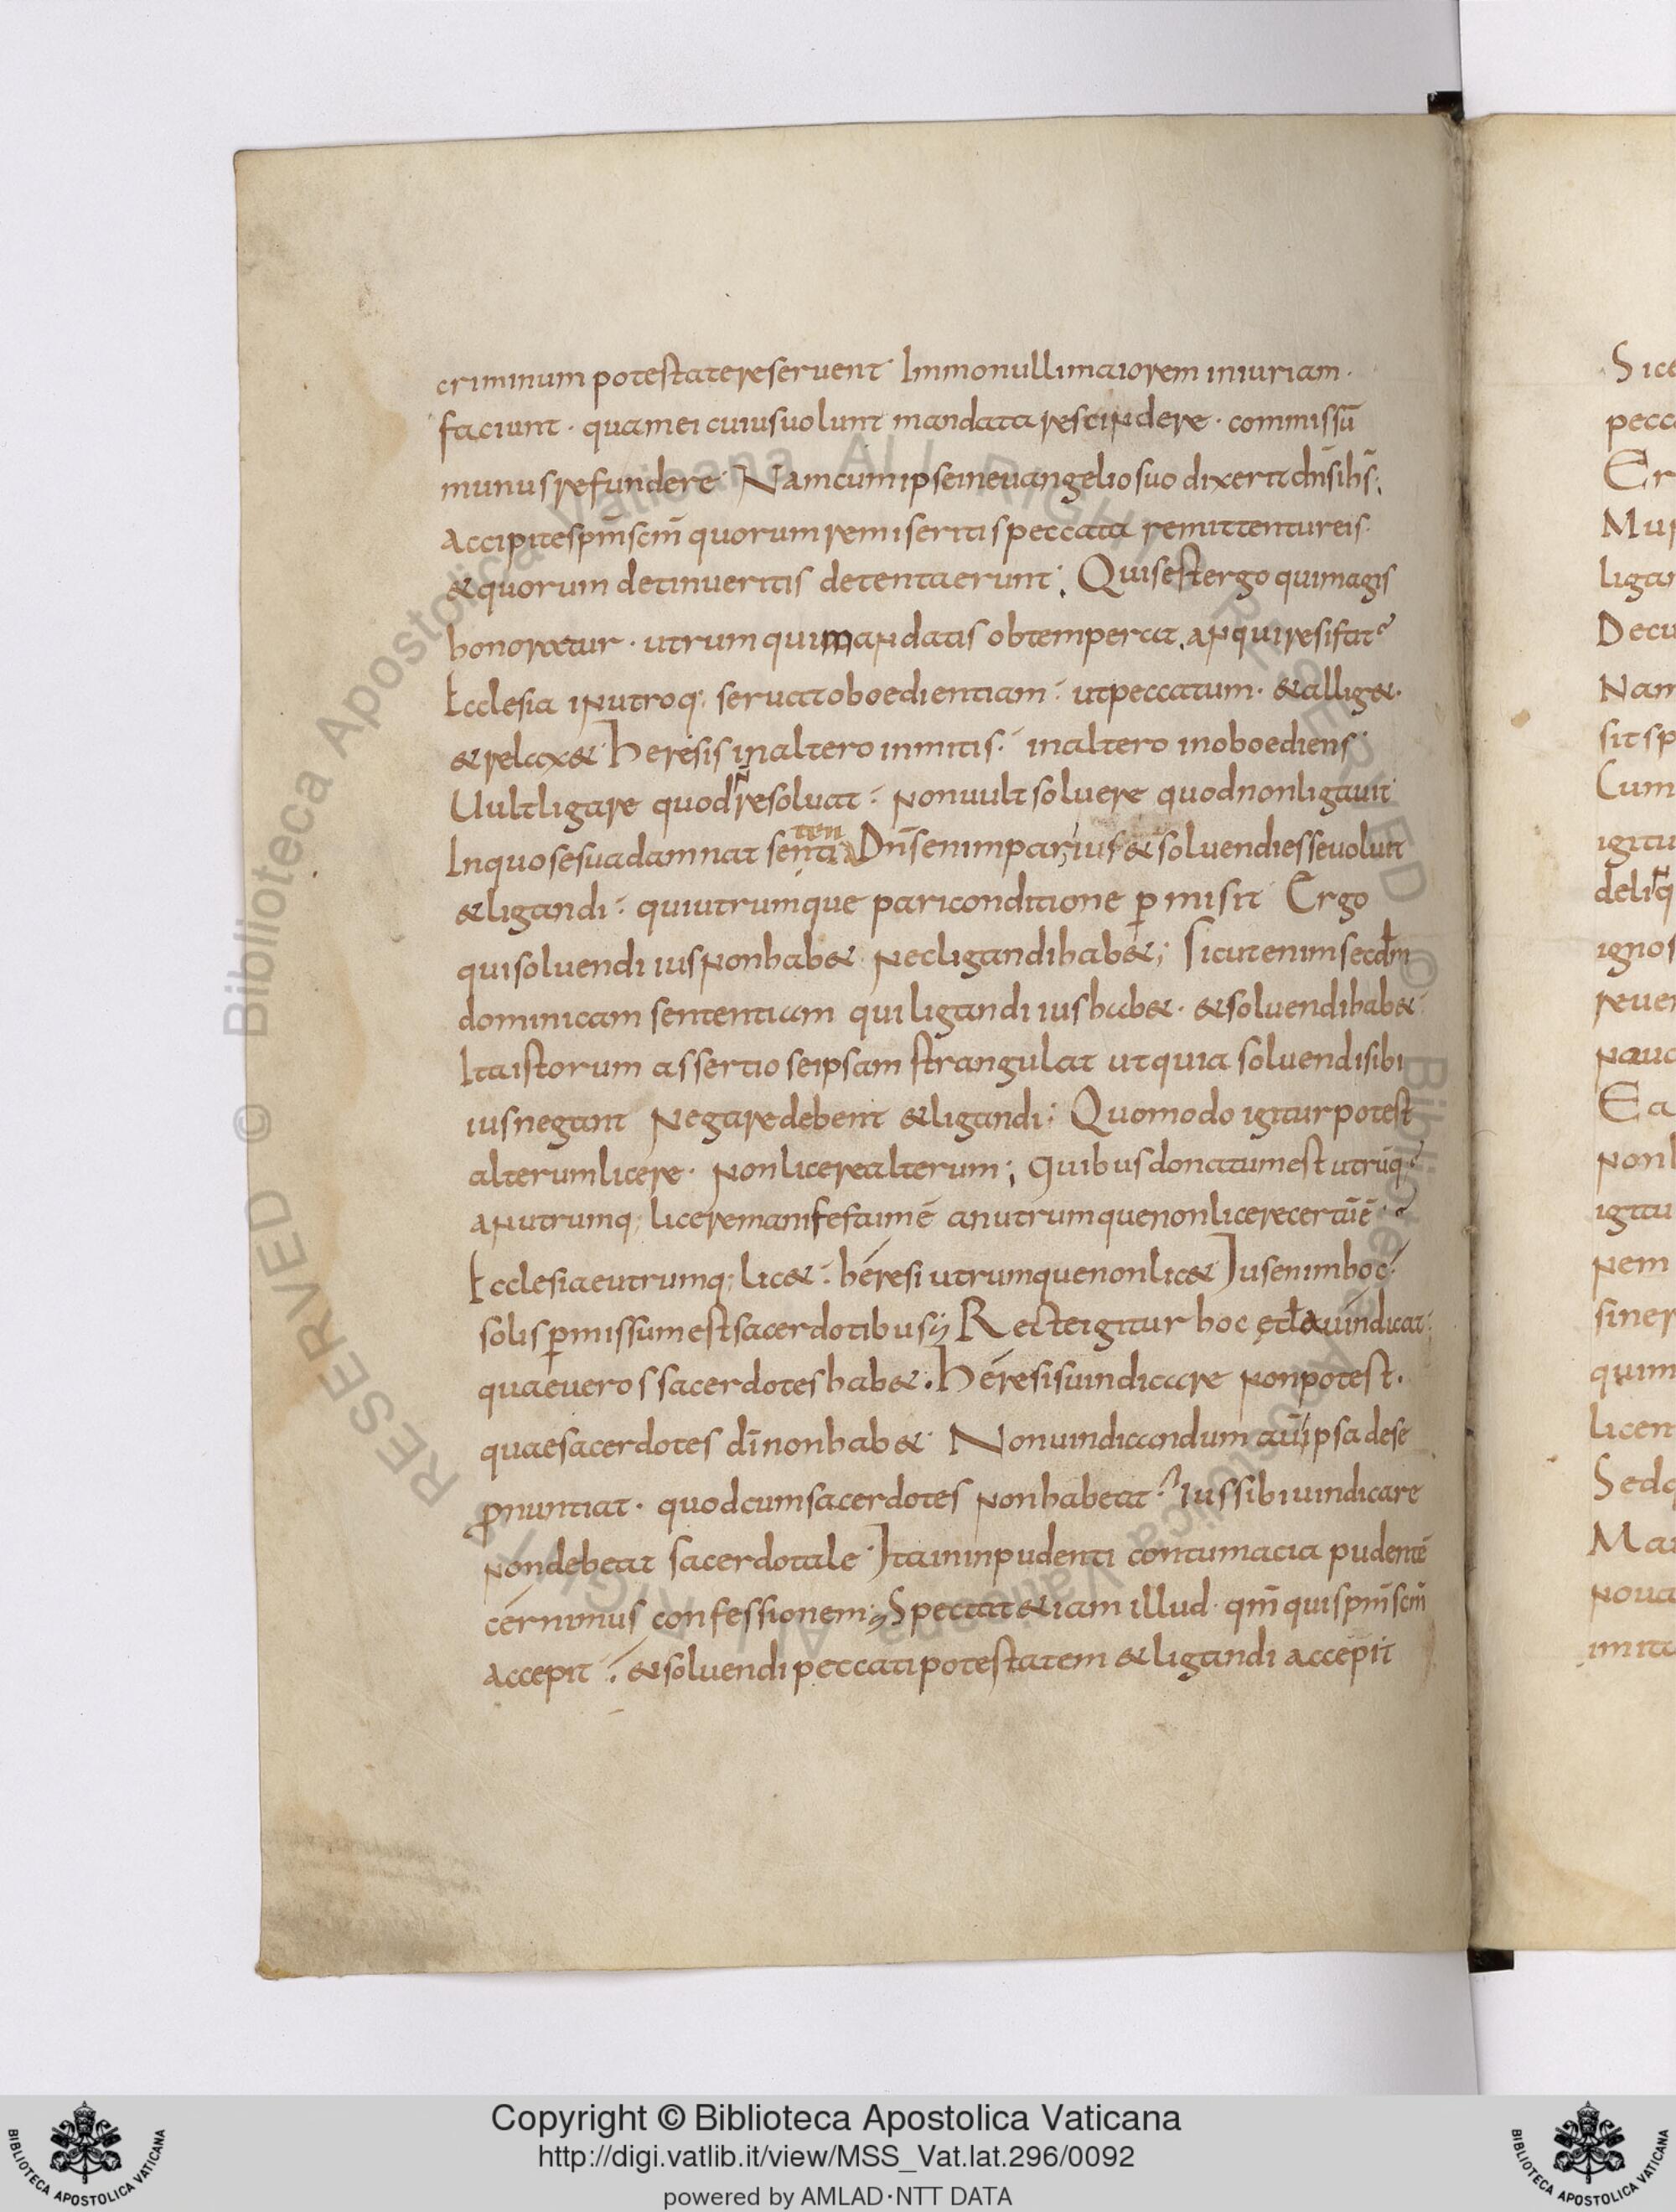 criminum potestate reseruent Immo nulli maiorem iniuriam ·
faciunt · quam ei cuius uolunt mandata rescindere · commissū
munus refundere Nam cum ipse in euangelio suo dixerit dn̄s ihs̄;
Accipite sp̄m sc̄m quorum remiseritis peccata remittentur eis·
& quorum detinueritis detenta erunt; Quis est ergo qui magis
honoretur · utrum qui mandatis obtemperat, an qui resistat?
Ecclesia in utroq; seruat oboedientiam· ut peccatum· & allig&·
& relax& Heresis in altero inmitis· in altero inoboediens·
Uult ligare quod ñ resoluat · non uult soluere quod non ligauit
In quo se sua damnat senten Dn̄s enim par ius & soluendi esse uoluit
& ligandi · qui utrumque pari conditione p̄misit Ergo
qui soluendi ius non hab& nec ligandi hab&; Sicut enim secdm̄
dominicam sententiam qui ligandi ius hab&· & soluendi hab&
Ita istorum assertio seipsam strangulat ut quia soluendi sibi
ius negant negare debent & ligandi; Quomodo igitur potest
alterum licere · non licere alterum; Quibus donatum est utrūq;
an utrumq; licere manifestum ē an utrumque non licere certū ē ·?
Ecclesiae utrumq; lic& · heresi utrumque non lic& Ius enim hoc
solis p̄missum est sacerdotibus; Recte igitur hoc eccła uindicat
quae ueros sacerdotes hab&. Heresis uindicare non potest.
quae sacerdotes dī non hab& Non uindicandum aū ipsa de se
ꝓnuntiat · quod cum sacerdotes non habeat ? Ius sibi uindicare
non debeat sacerdotale · Ita in inpudenti contumacia pudentē
cernimus confessionem; Spectat &iam illud · qm̄ qui sp̄m sc̄m
accepit · & soluendi peccati potestatem & ligandi accepit
Copyright © Biblioteca Apostolica Vaticana
http://digi.vatlib.it/view/MSS_Vat.lat.296/0092
powered by AMLAD·NTT DATA